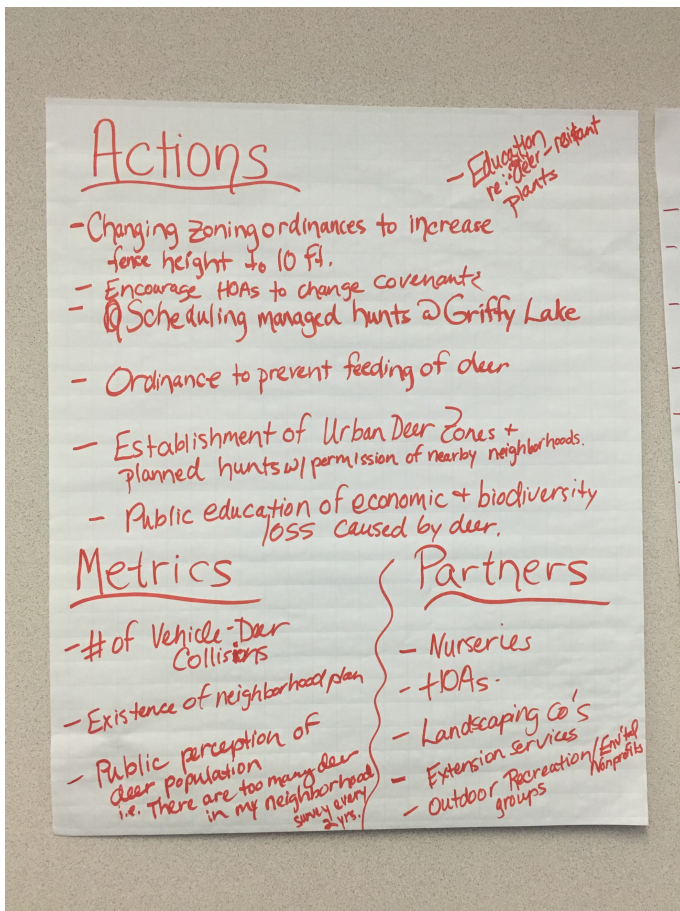 Actions
- Education
re: deer-resitant
plants
- Changing zoning ordinances to increase
fense height to 10 ft.
- Encourage HOAs to change covenants
- Scheduling managed hunts @ Griffy Lake
- Ordinance to prevent feeding of deer
- Establishment of Urban Deer Zones +
planned hunts w/ permission of nearby neighborhoods.
- Public education of economic + biodiversity
loss caused by deer.
Metrics
- # of Vehicle-Deer
Collisions
- Existence of neighborhood plan
- Public perception of
deer population
i.e. There are too many deer
in my neighborhood
survey every
2 yrs.
Partners
- Nurseries
- HOAs.
- Landscaping Co's
- Extension Services
- Outdoor Recreation/Envi'tal
groups Nonprofits